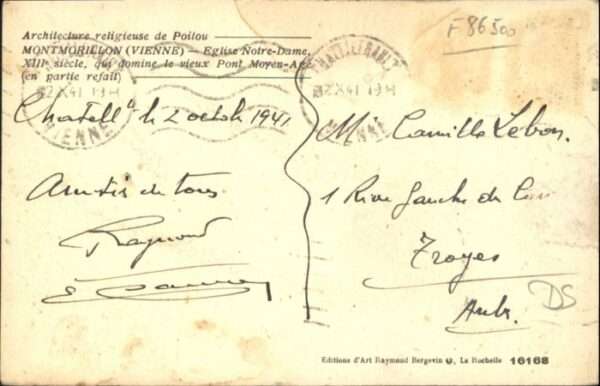 Architecture religieuse de Poitou
MONTMORILLON (VIENNE) - Eglise Notre-Dame,
XIIIe siècle, qui domine le vieux Pont Moyen-Age
(en partie refait)
F 86500
VIENNE
VIENNE
le 2 octob 1941
Amitiés de tous
Raymond
Mr Camille Lebon
1 Rive Gauche du
Troyes
Aube
DS
Editions d'Art Raymond Bergevin, La Rochelle 16168